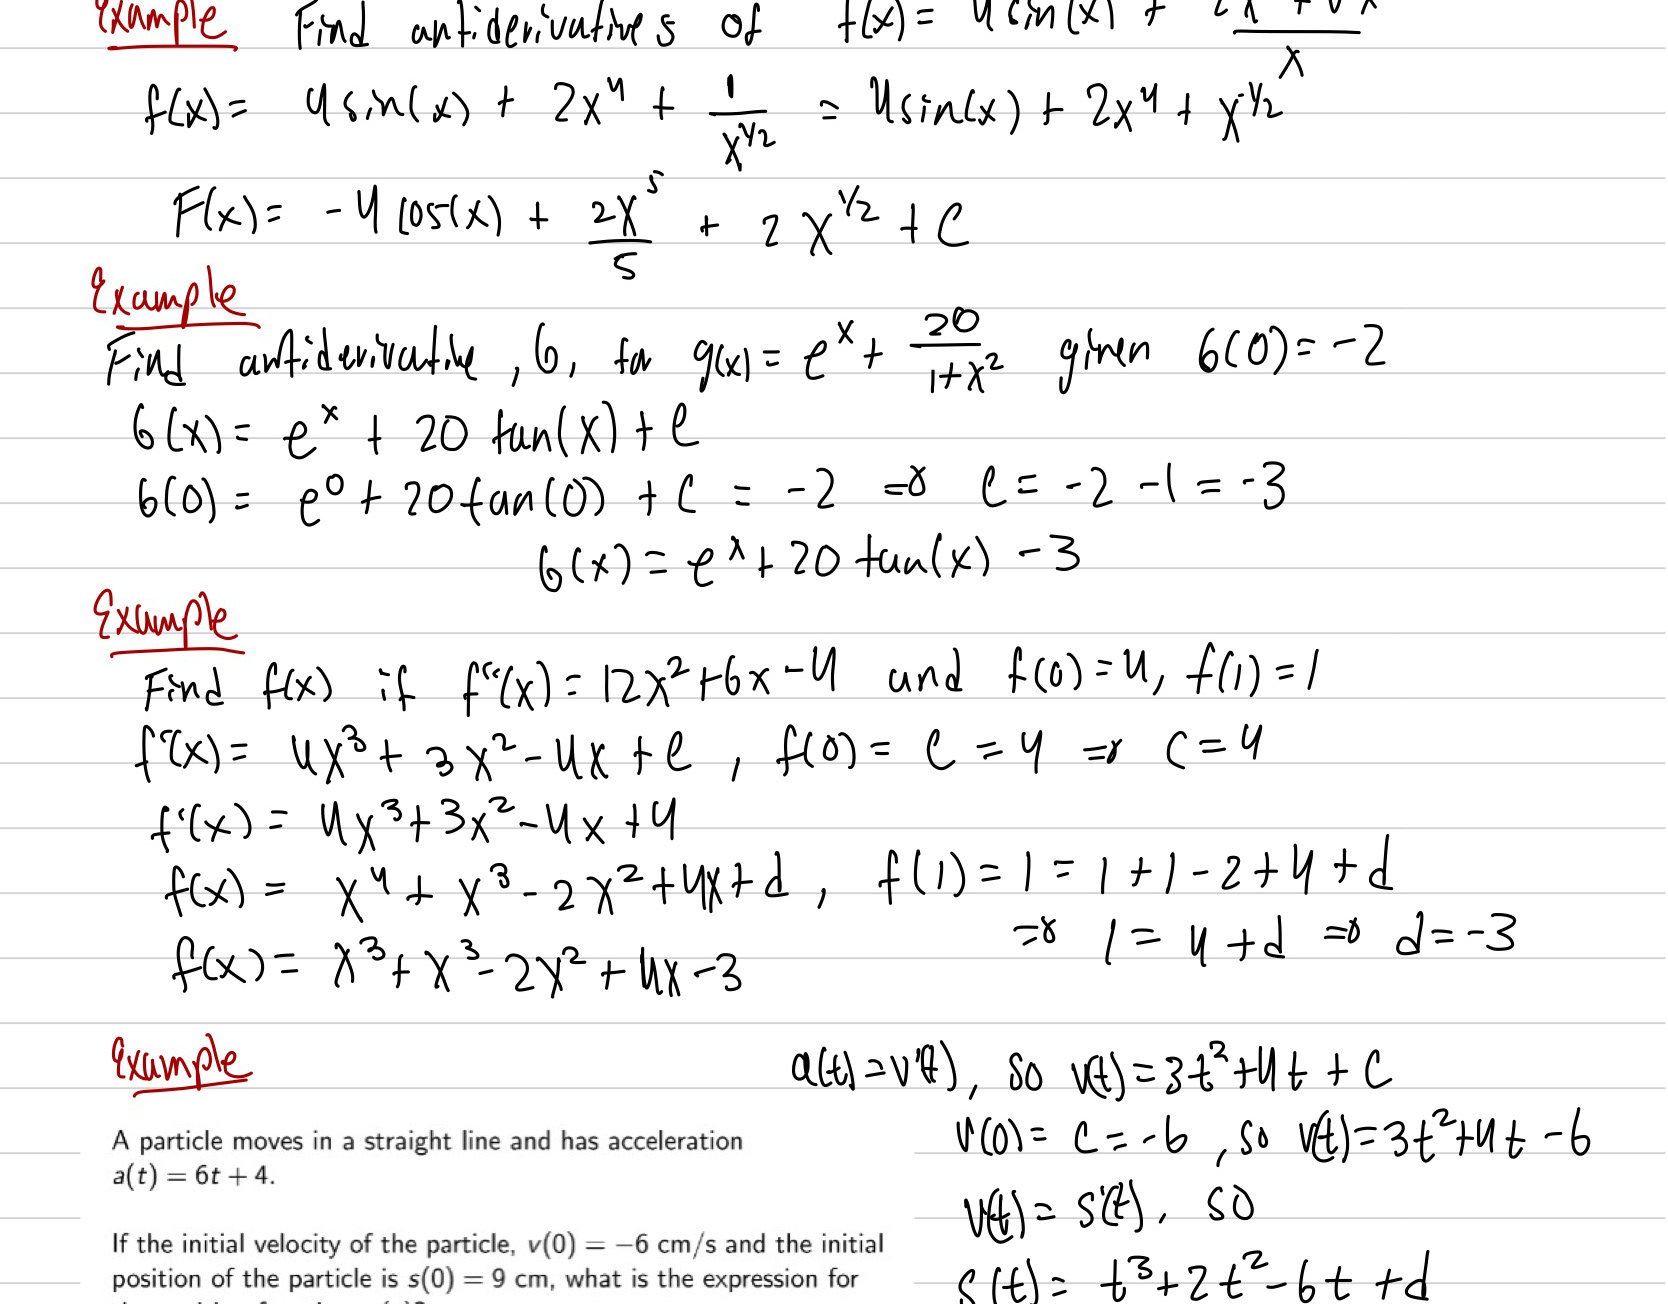 Example Find antiderivatives of f(x) = 4 sin(x) +
x
f(x) = 4 sin(x) + 2x⁴ + 1/x^(1/2) = 4 sin(x) + 2x⁴ + x^(-1/2)
F(x) = -4 cos(x) + 2x⁵/5 + 2x^(1/2) + C
Example
Find antiderivative, G, for g(x) = e^x + 20/(1+x²) given G(0) = -2
G(x) = e^x + 20 tan(x) + C
G(0) = e⁰ + 20 tan(0) + C = -2 ⇒ C = -2 -1 = -3
G(x) = e^x + 20 tan(x) - 3
Example
Find f(x) if f''(x) = 12x² + 6x - 4 and f(0) = 4, f(1) = 1
f'(x) = 4x³ + 3x² - 4x + C, f(0) = C = 4 ⇒ C = 4
f'(x) = 4x³ + 3x² - 4x + 4
f(x) = x⁴ + x³ - 2x² + 4x + d, f(1) = 1 = 1 + 1 - 2 + 4 + d
⇒ 1 = 4 + d ⇒ d = -3
f(x) = x³ + x³ - 2x² + 4x - 3
Example
a(t) = v'(t), so v(t) = 3t² + 4t + C
v(0) = C = -6, so v(t) = 3t² + 4t - 6
v(t) = s'(t), so
s(t) = t³ + 2t² - 6t + d
A particle moves in a straight line and has acceleration
a(t) = 6t + 4.
If the initial velocity of the particle, v(0) = −6 cm/s and the initial
position of the particle is s(0) = 9 cm, what is the expression for